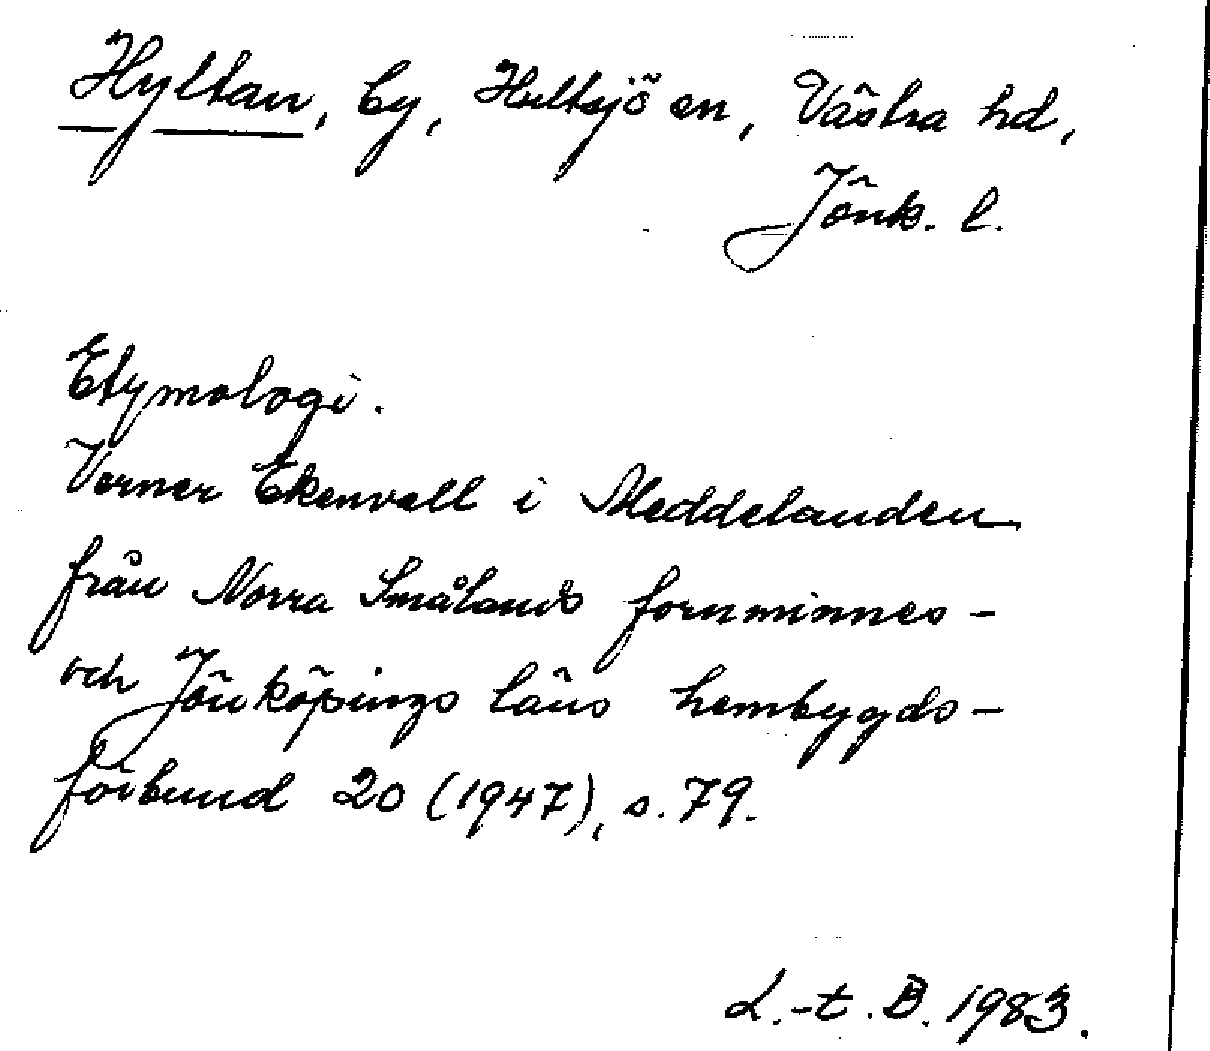 Hyltan, by, Hultsjö sn, Västra hd,
Jönk. l.
Etymologi.
Verner Ekenvall i Meddelanden
från Norra Smålands fornminnes-
och Jönköpings läns hembygds-
förbund 20 (1947), s. 79.
L.-t. B. 1983.